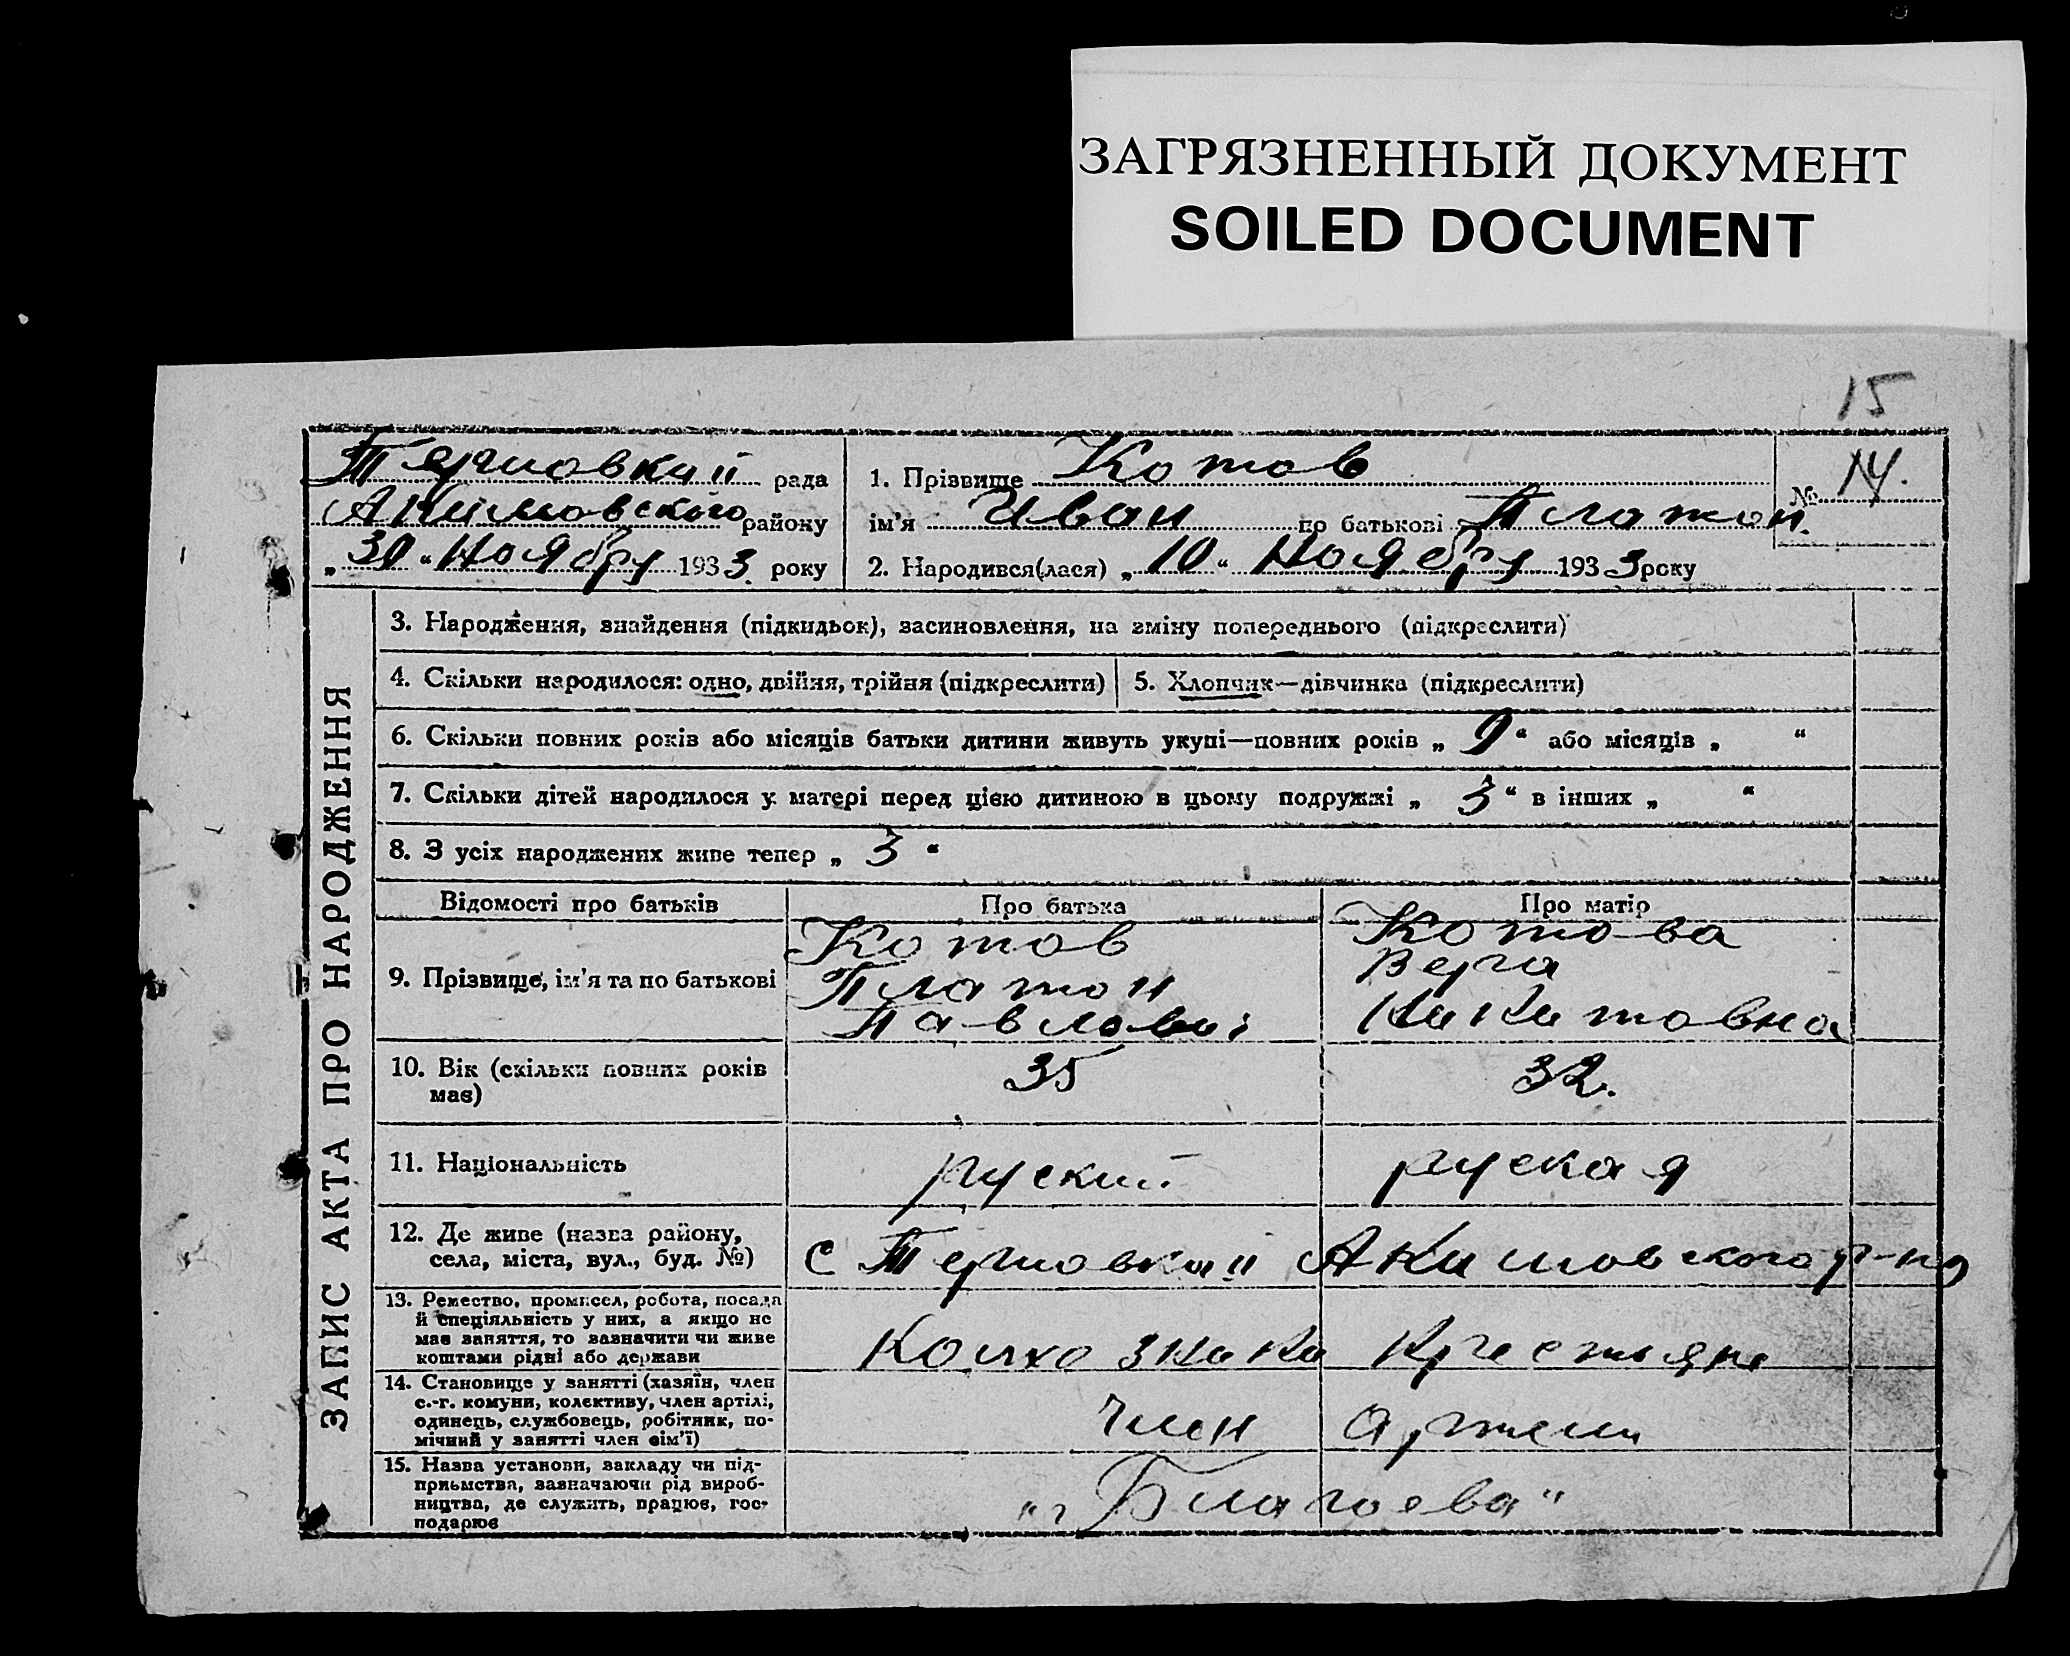 ЗАГРЯЗНЕННЫЙ ДОКУМЕНТ
SOILED DOCUMENT
15
Терновкий рада
Акимовского району
„30“ Ноября 1933 року
1. Прізвище Котов
ім'я Иван по батькові Платон.
2. Народився(лася) „10“ Ноября 1933 року
№ 14.
ЗАПИС АКТА ПРО НАРОДЖЕННЯ
3. Народження, знайдення (підкидьок), засиновлення, на зміну попереднього (підкреслити)
4. Скільки народилося: одно, двійня, трійня (підкреслити)
5. Хлопчик—дівчинка (підкреслити)
6. Скільки повних років або місяців батьки дитини живуть укупі—повних років „9“ або місяців „ “
7. Скільки дітей народилося у матері перед цією дитиною в цьому подружжі „3“ в інших „ “
8. З усіх народжених живе тепер „3“
Відомості про батьків
Про батька
Про матір
9. Прізвище, ім'я та по батькові
Котов
Платон
Павлович
Котова
Вера
Никитовна
10. Вік (скільки повних років
має)
35
32.
11. Національність
руский
руская
12. Де живе (назва району,
села, міста, вул., буд. №)
с Терновкий Акимовского р-на
13. Ремество, промисел, робота, посада
й спеціяльність у них, а якщо не
має заняття, то зазначити чи живе
коштами рідні або держави
Колхозники Крестьяне
14. Становище у занятті (хазяїн, член
с.-г. комуни, колективу, член артілі,
одинець, службовець, робітник, по-
мічний у занятті член сім'ї)
член артели
15. Назва установи, закладу чи під-
приьмства, зазначаючи рід вироб-
ництва, де служить, працює, гос-
подарює
Благоева"